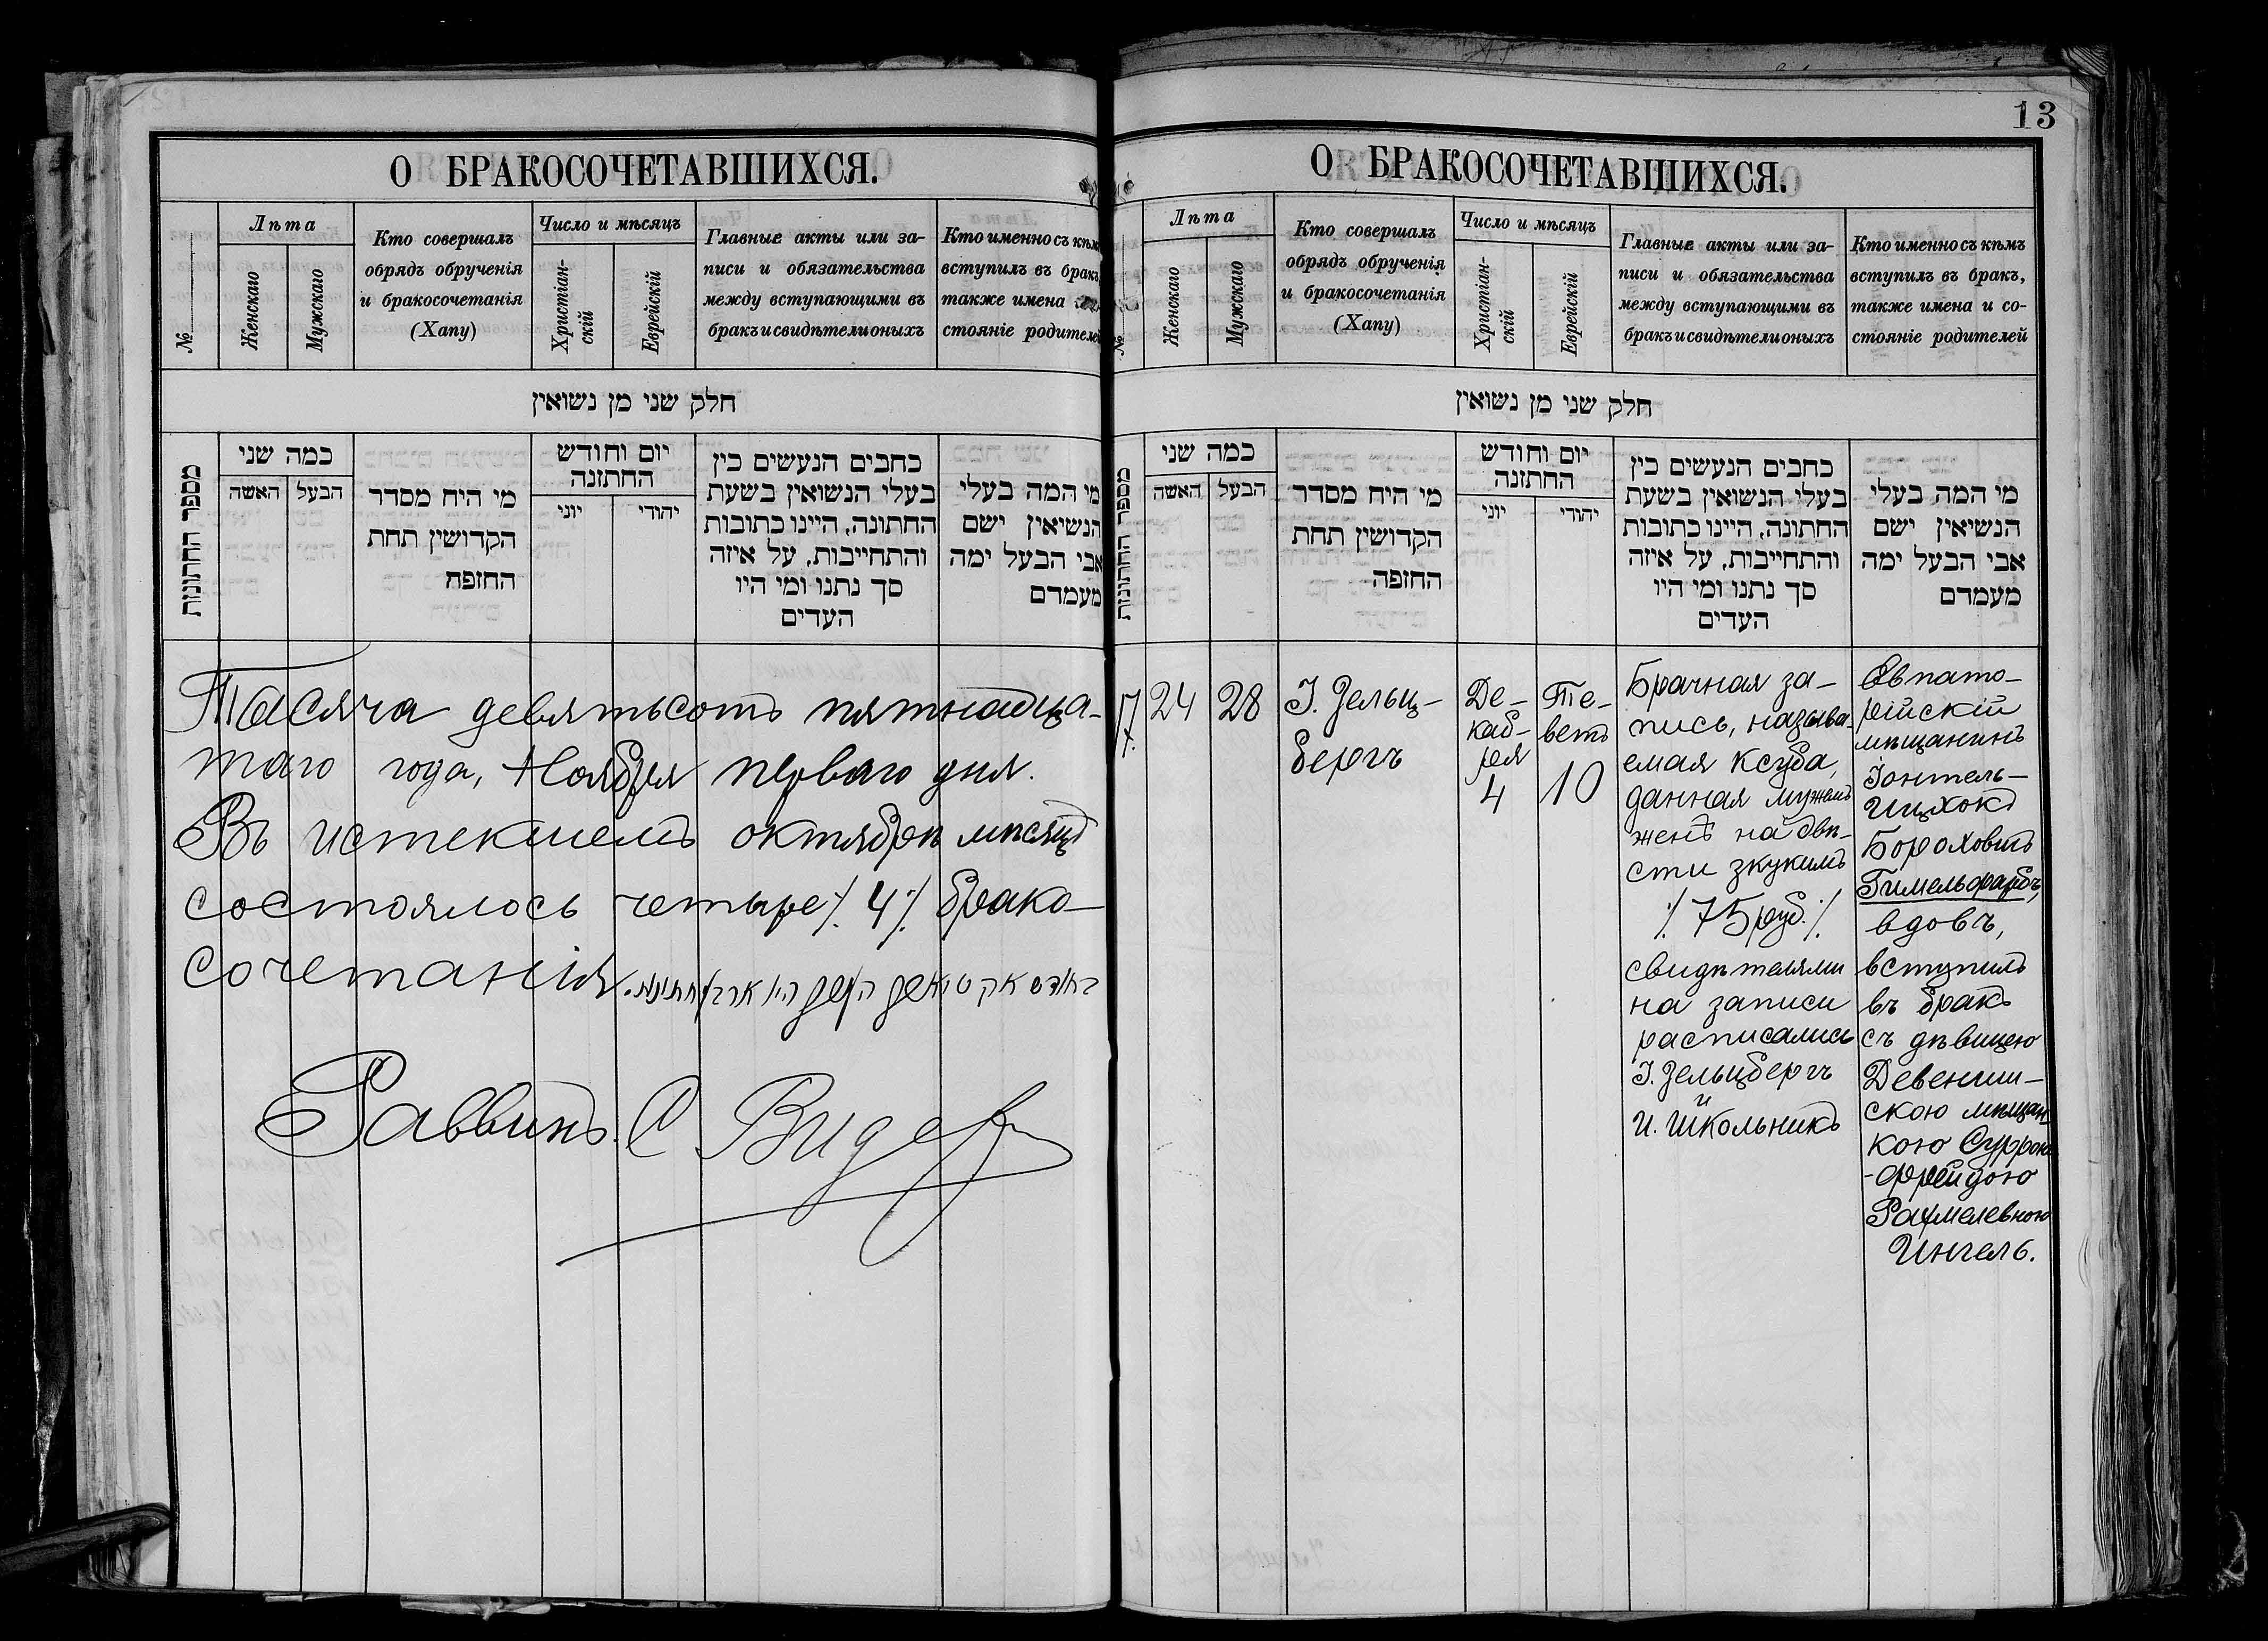 13
О БРАКОСОЧЕТАВШИХСЯ.
№
Лѣта
Женскаго
Мужскаго
Кто совершалъ
обрядъ обрученія
и бракосочетанія
(Хапу)
Число и мѣсяцъ
Христіан-
скій
Еврейскій
Главные акты или за-
писи и обязательства
между вступающими въ
бракъ и свидѣтели оныхъ
Кто именно съ кѣмъ
вступилъ въ бракъ,
также имена
стояніе родителей
חלק שני מן נשואין
מספר החתונות
כמה שני
האשה
הבעל
מי היח מסדר
הקדושין תחת
החזפח
יום וחודש
החתזנה
יוני
יהודי
כחבים הנעשים כין
בעלי הנשואין בשעת
החתונה, היינו כתובות
והתחייבות, על איזה
סך נתנו ומי היו
העדים
מי המה בעלי
הנשיאין ישם
אבי הבעל ימה
מעמדם
Тысяча девятьсотъ пятнадца-
таго года, Ноября перваго дня.
Въ истекшемъ октябрѣ мѣсяцѣ
состоялось четыре ./. 4 ./. брако-
сочетанія.
Раввинъ С Видер
О БРАКОСОЧЕТАВШИХСЯ.
№
Лѣта
Женскаго
Мужскаго
Кто совершалъ
обрядъ обрученія
и бракосочетанія
(Хапу)
Число и мѣсяцъ
Христіан-
скій
Еврейскій
Главные акты или за-
писи и обязательства
между вступающими въ
бракъ и свидѣтели оныхъ
Кто именно съ кѣмъ
вступилъ въ бракъ,
также имена и со-
стояніе родителей
חלק שני מן נשואין
מספר החתונות
כמה שני
האשה
הבעל
מי היח מסדר
הקדושין תחת
החזפה
יום וחודש
החתזנה
יוני
יהודי
כחבים הנעשים כין
בעלי הנשואין בשעת
החתונה, היינו כתובות
והתחייבות, על איזה
סך נתנו ומי היו
העדים
מי המה בעלי
הנשיאין ישם
אבי הבעל ימה
מעמדם
17.
24
28
І. Зельц-
бергъ
Де-
каб-
ря
4
Те-
ветъ
10
Брачная за-
пись, называ-
емая ксуба,
данная мужемъ
женѣ на двѣ-
сти зкукимъ
./. 75 руб. ./.
свидѣтелями
на записи
расписались
І. Зельцбергъ
и
И. Школьникъ
Евпато-
рійскій
мѣщанинъ
Іонтель-
Ицхокъ
Бороховъ
Гимельфарбъ,
вдовъ,
вступилъ
въ бракъ
съ дѣвицею
Девениш-
скою мѣщан-
кою Суррою
-Фрейдою
Рахмелевною
Ингель.